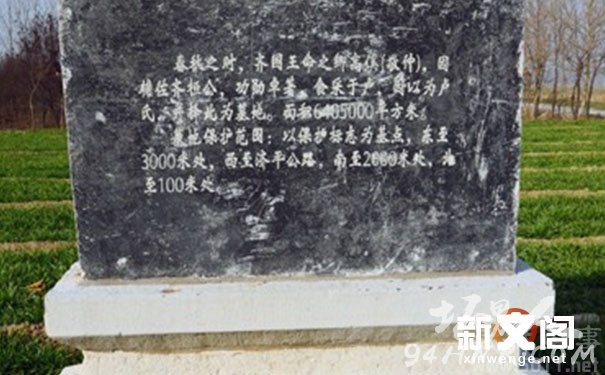 春秋之时，齐国王命之卿高傒(敬仲)，因
辅佐齐桓公，功勋卓著，食采于卢，因以为卢
氏，并择此为墓地。面积6405000平方米。
墓地保护范围：以保护标志为基点，东至
3000米处，西至济平公路，南至2000米处，北
至100米处。
新文阁
www.xinwenge.net